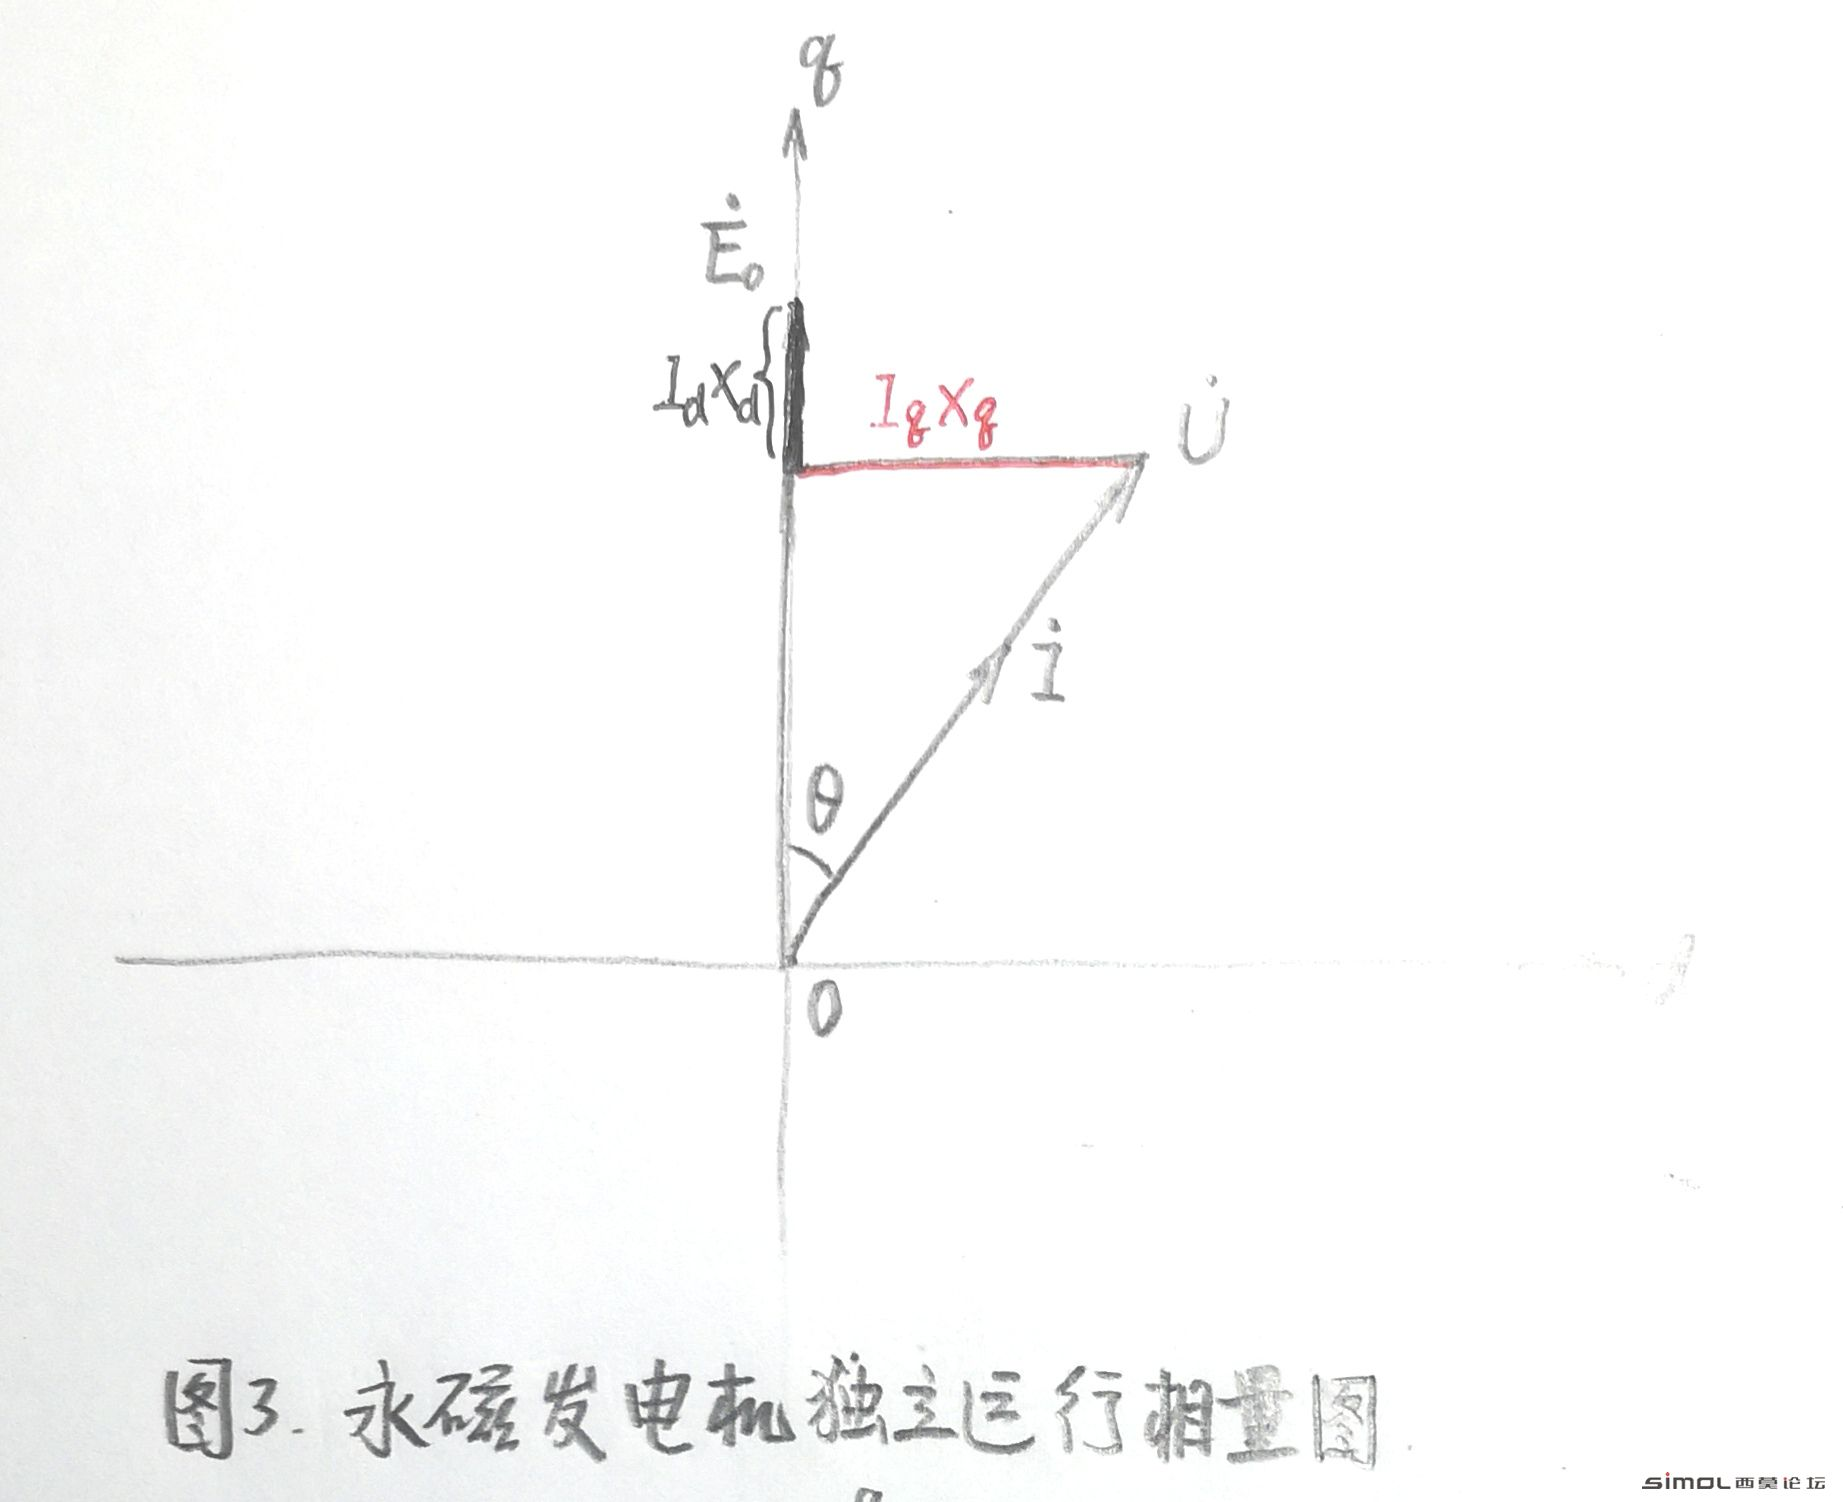 q
Ė₀
I_d X_d
I_q X_q
U̇
İ
θ
0
图3. 永磁发电机独立运行相量图
simol 西莫论坛